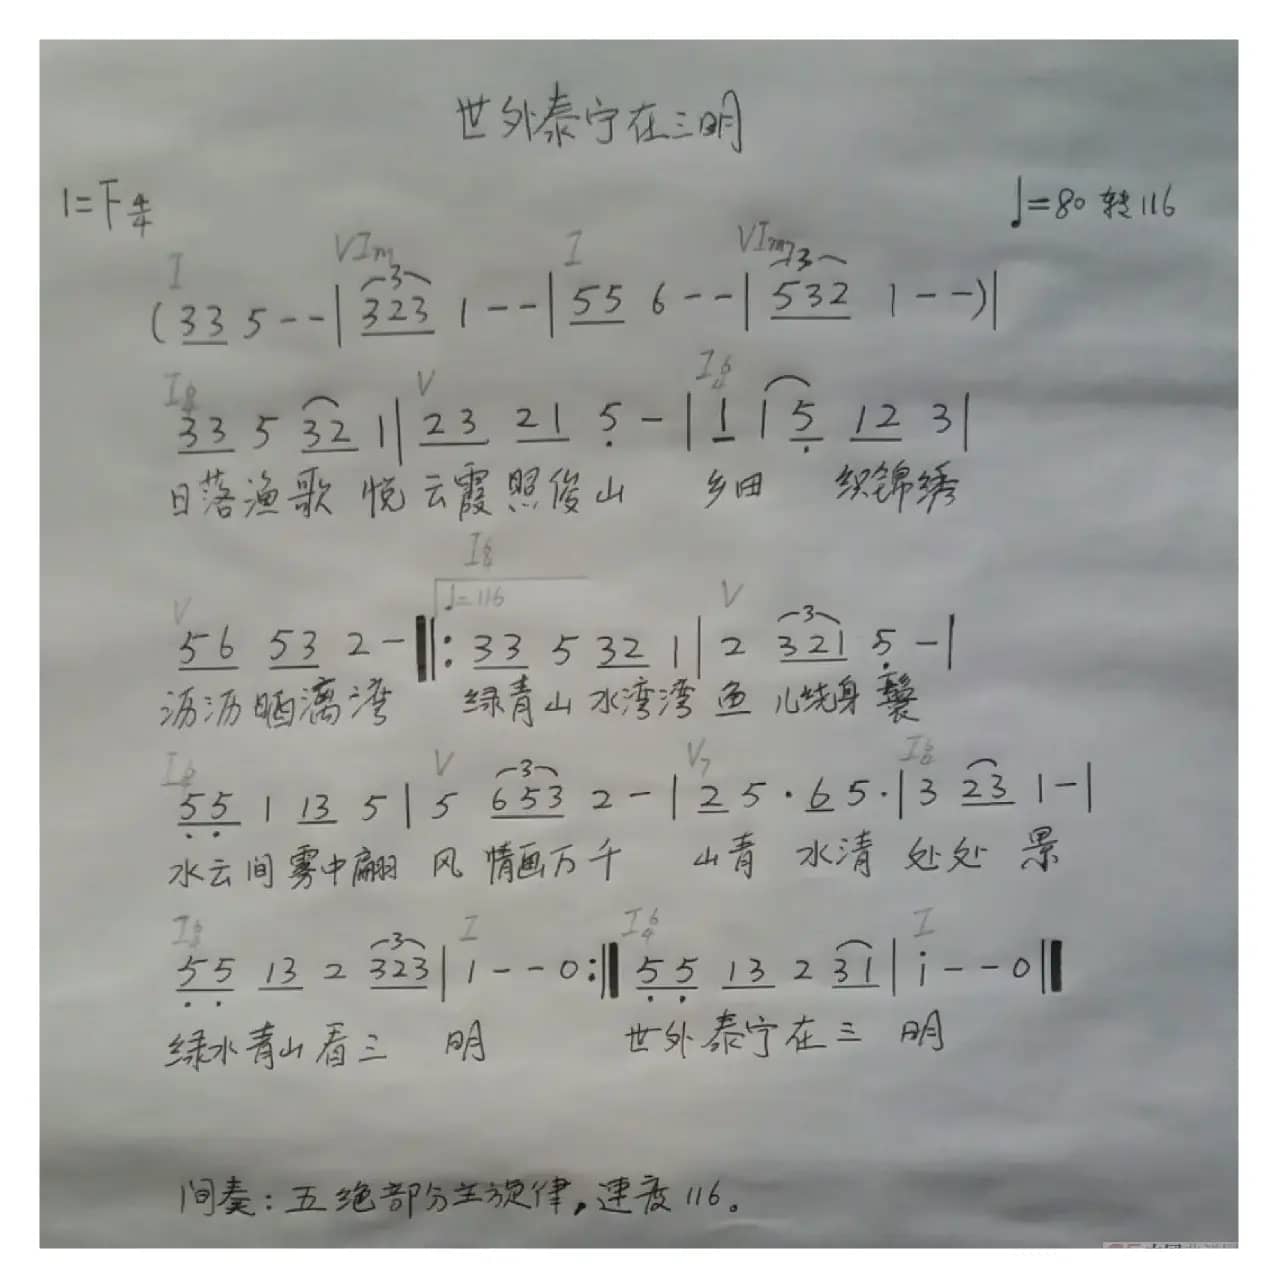 世外泰宁在三明
1=F 4/4 ♩=80 转116
I VIm I VIm7
(33 5--|323 1--|55 6--|532 1--)|
33 5 32 1|23 21 5-|1 1 5 12 3|
日落渔歌 悦 云霞照俊山 乡田 织锦绣
♩=116
V V
56 53 2-‖:33 5 32 1|2 321 5-|
沥沥晒漓湾 绿青山水湾湾 鱼儿绕身
V V7
55 1 13 5|5 653 2-|2 5·6 5·|3 23 1-|
水云间雾中翩 风情画万千 山青 水清 处处 景
I I64 I
55 13 2 323|i--0:‖55 13 2 31|i--0‖
绿水青山看三 明 世外泰宁在三 明
间奏:五绝部分主旋律,速度116。